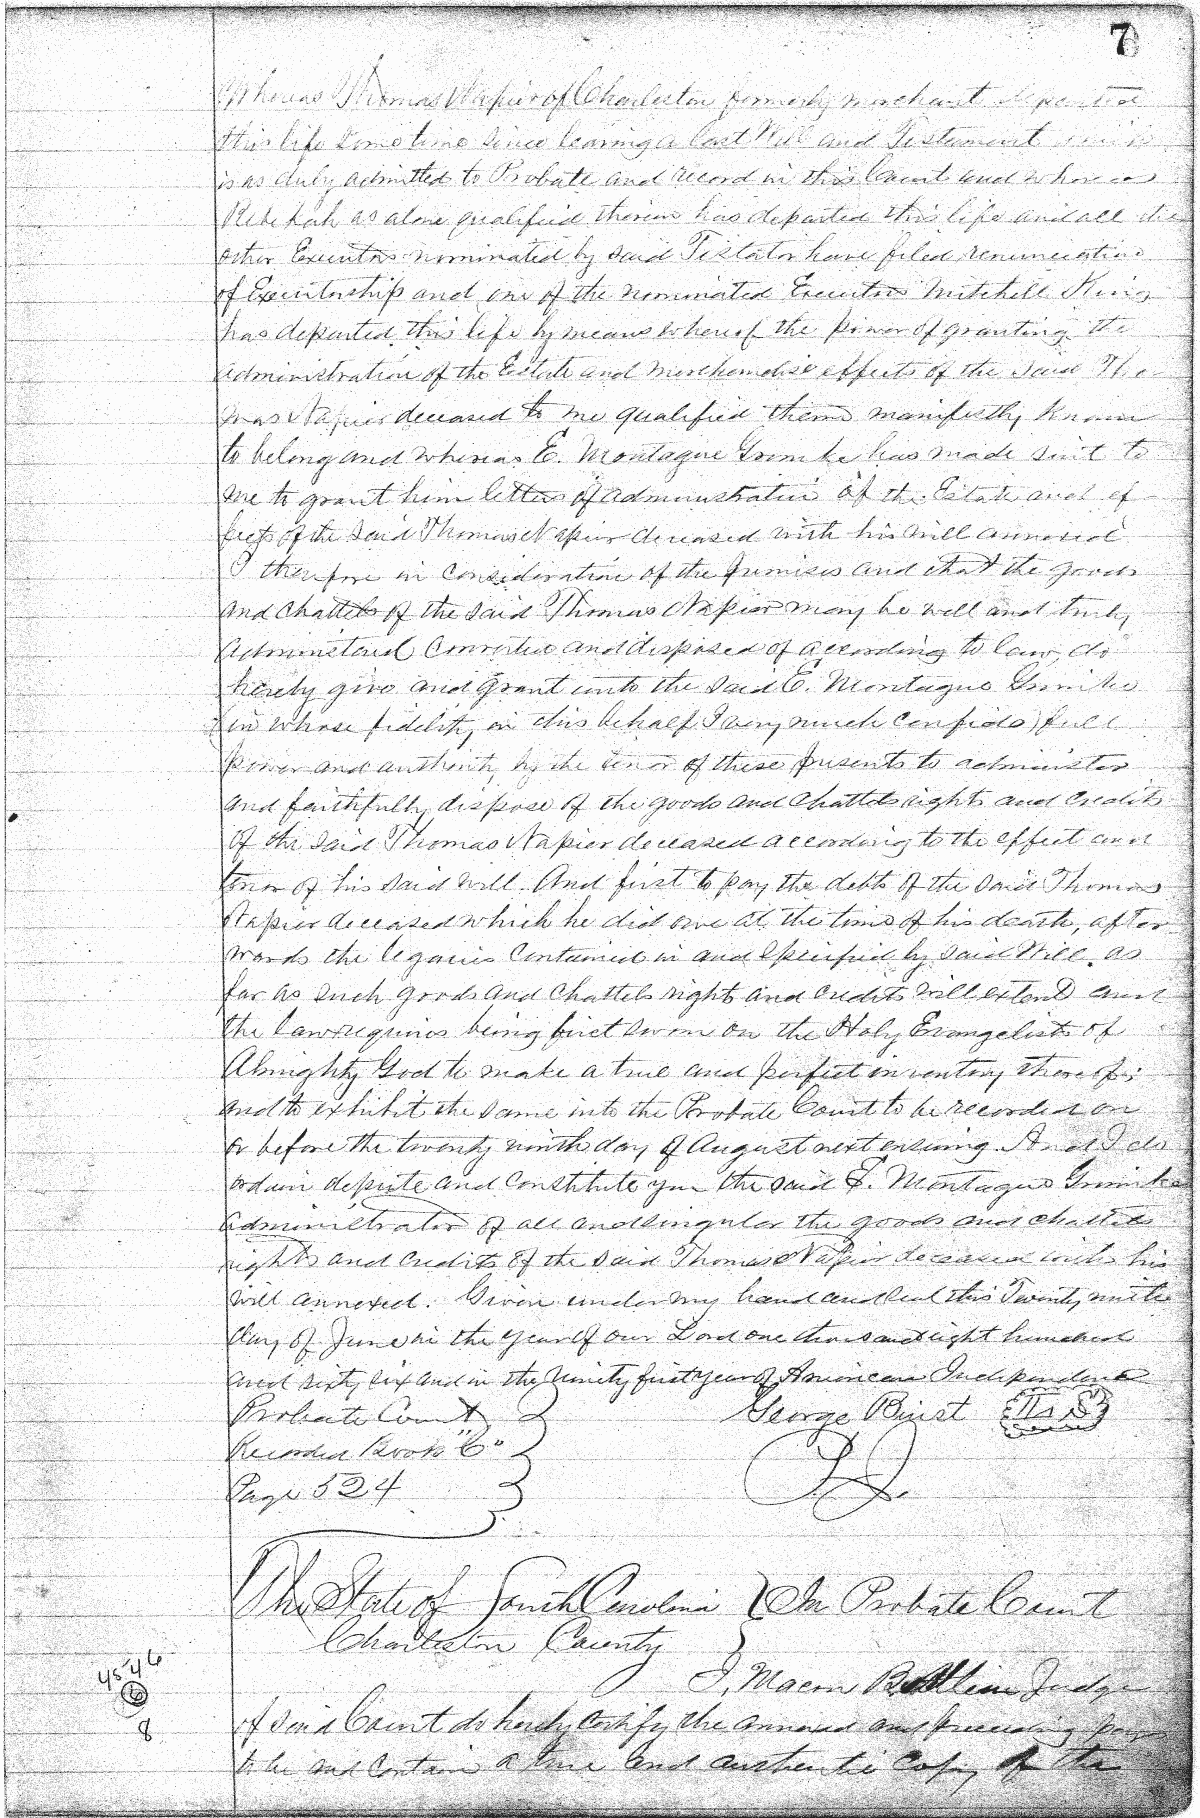 7
Whereas Thomas Napier of Charleston formerly merchant departed
this life some time since leaving a last Will and Testament which
was duly admitted to Probate and record in this Court and whereas
Rebekah as alone qualified therein has departed this life and all the
other Executors nominated by said Testator have filed renunciations
of Executorship and one of the nominated Executors Mitchell King
has departed this life by means whereof the power of granting the
administration of the Estate and merchandise effects of the said Tho
mas Napier deceased to me qualified them manifestly known
to belong and whereas E. Montague Grimke has made suit to
me to grant him letters of administration of the Estate and ef
fects of the said Thomas Napier deceased with his will annexed
I therefore in consideration of the premises and that the goods
and chattels of the said Thomas Napier may be well and truly
administered converted and disposed of according to law, do
hereby give and grant unto the said E. Montague Grimke
(in whose fidelity in this behalf I very much confide) full
power and authority by the tenor of these presents to administer
and faithfully dispose of the goods and chattels rights and credits
of the said Thomas Napier deceased according to the effect and
tenor of his said will. And first to pay the debts of the said Thomas
Napier deceased which he did owe at the time of his death, after
wards the legacies contained in and specified by said Will as
far as such goods and chattels rights and credits will extend and
the law requires being first sworn on the Holy Evangelists of
Almighty God to make a true and perfect inventory thereof;
and to exhibit the same into the Probate Court to be recorded on
or before the twenty ninth day of August next ensuing. And I do
ordain depute and constitute you the said E. Montague Grimke
administrator of all and singular the goods and chattels
rights and credits of the said Thomas Napier deceased with his
will annexed. Given under my hand and seal this Twenty ninth
day of June in the year of our Lord one thousand eight hundred
and sixty six and in the ninety first year of American Independence
Probate Court George Buist
Recorded Book "C"
Page 524
The State of South Carolina } In Probate Court
Charleston County
I, Macon B. Allen Judge
of said Court do hereby certify the annexed and preceding pages
to be and contain a true and authentic copy of the
45-46
6
8